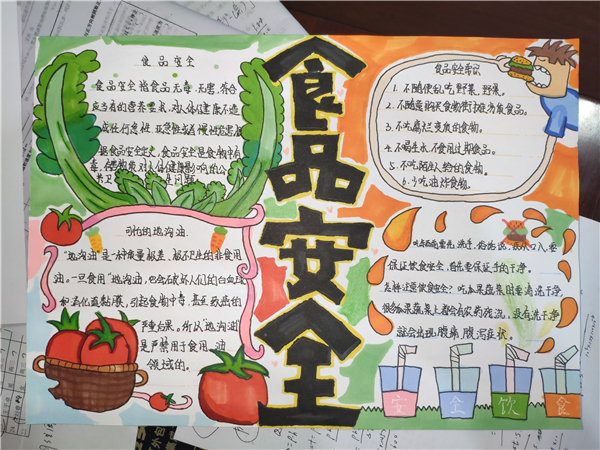 食品安全
食品安全
食品安全指食品无毒、无害，符合
应当有的营养要求，对人体健康不造
成任何急性、亚急性或者慢性危害。
据食品安全定义，食品安全是食物中有
毒、有害物质对人体健康影响的公
共卫生问题
可怕的地沟油
"地沟油"是一种质量极差、极不卫生的非食用
油。一旦食用"地沟油"，也会破坏人们的白血球
和消化道黏膜，引起食物中毒，甚至致癌的
严重后果。所以"地沟油"
是严禁用于食用油
领域的。
食品安全常识
1. 不随便乱吃野菜、野果。
2. 不随意购买食物街摊劣质食品。
3. 不吃腐烂变质的食物。
4. 不喝生水、不食用过期食品。
5. 不吃陌生人给的食物。
6. 少吃油炸食物。
吃东西前要先洗手，俗话说，病从口入，要
保证饮食安全，首先要保证手的干净。
怎样注意饮食安全？吃水果蔬菜因要清洗干净，
很多水果蔬菜上都会有农药残洗，没有洗干净
就会出现腹痛、腹泻症状。
安 全 饮 食